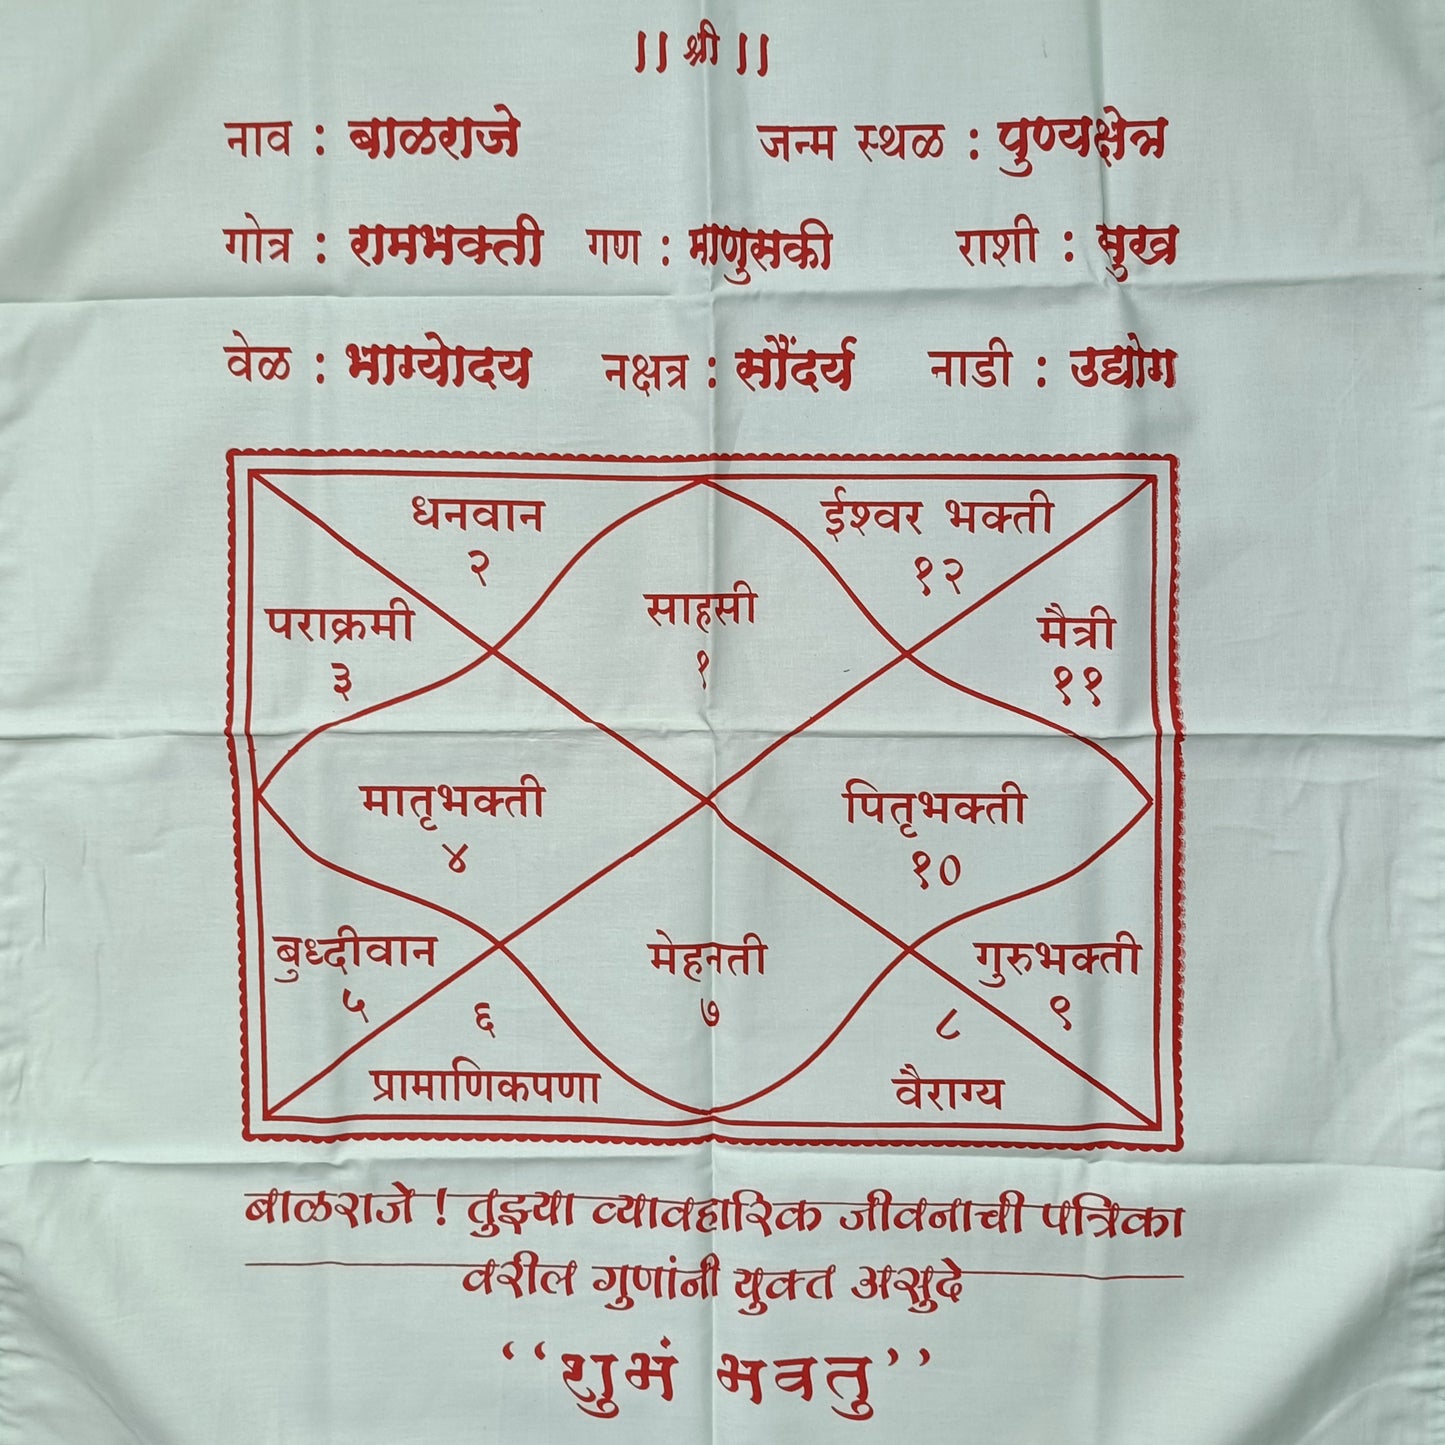 || श्री ||
नाव : बाळराजे जन्म स्थळ : पुण्यक्षेत्र
गोत्र : रामभक्ती गण : माणुसकी राशी : सुख
वेळ : भाग्योदय नक्षत्र : सौंदर्य नाडी : उद्योग
धनवान ईश्वर भक्ती
२ १२
साहसी
१
पराक्रमी मैत्री
३ ११
मातृभक्ती पितृभक्ती
४ १०
बुध्दीवान मेहनती गुरुभक्ती
५ ६ ७ ८ ९
प्रामाणिकपणा वैराग्य
बाळराजे ! तुझ्या व्यावहारिक जीवनाची पत्रिका
वरील गुणांनी युक्त असुदे
‘‘शुभं भवतु’’